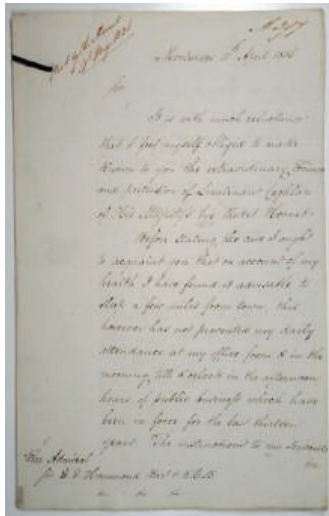 Montevideo 11th April 1834
Sir
It is with much reluctance
that I feel myself obliged to make
known to you the extraordinary
and pretention of Lieutenant Coghlan
of His Majesty's brig Packet Hornet.
Before stating the case I ought
to acquaint you that on account of my
health I have found it advisable to
sleep a few miles from town. this
however has not prevented my daily
attendance at my office from 8 in the
morning till 4 o'clock in the afternoon
hours of public business which have
been in force for the last thirteen
years. The instructions to my Servants
Admiral
Sir Hammond Bart K.C.B